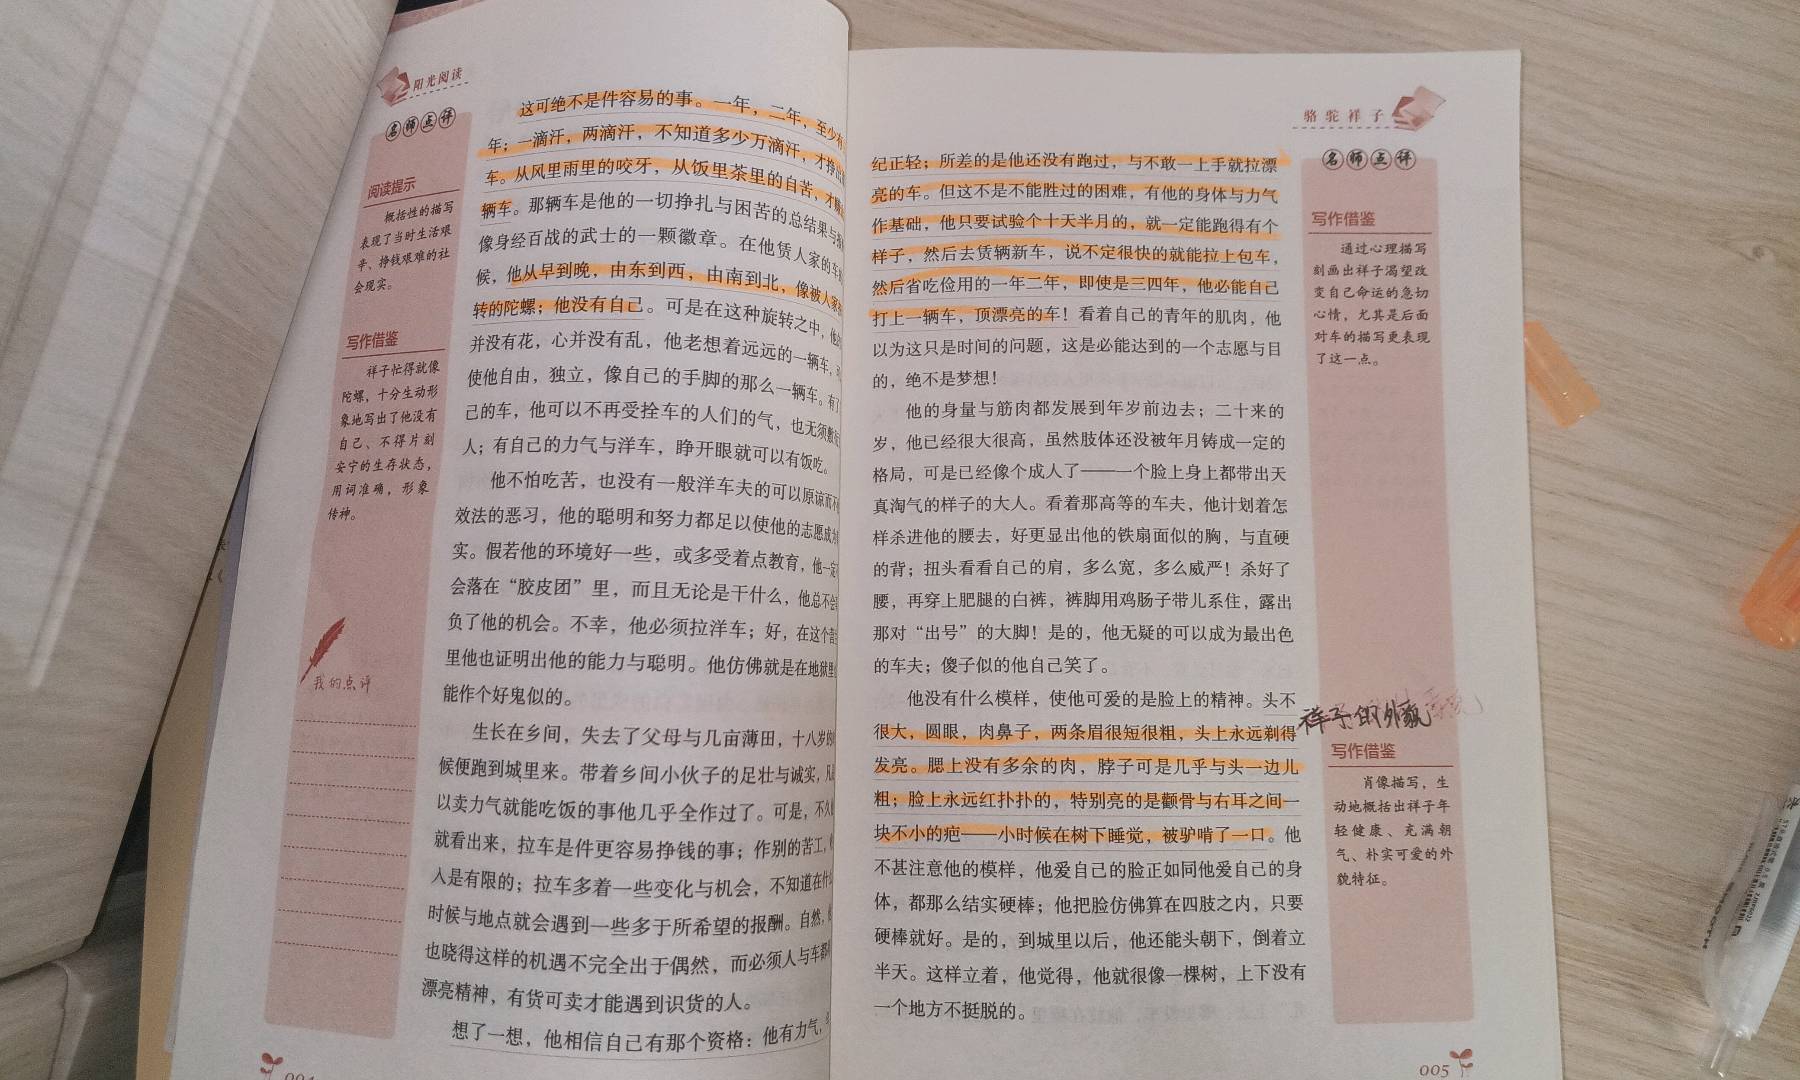 阳光阅读
名师点评
阅读提示
概括性的描写
表现了当时生活艰
辛、挣钱艰难的社
会现实。
写作借鉴
祥子忙得就像
陀螺，十分生动形
象地写出了他没有
自己、不得片刻
安宁的生存状态，
用词准确，形象
传神。
我的点评
这可绝不是件容易的事。一年，二年，至少有
年；一滴汗，两滴汗，不知道多少万滴汗，才挣出
车。从风里雨里的咬牙，从饭里茶里的自苦，才赚
辆车。那辆车是他的一切挣扎与困苦的总结果与
像身经百战的武士的一颗徽章。在他赁人家的车的
候，他从早到晚，由东到西，由南到北，像被人家
转的陀螺；他没有自己。可是在这种旋转之中，他的
并没有花，心并没有乱，他老想着远远的一辆车，
使他自由，独立，像自己的手脚的那么一辆车。有了
己的车，他可以不再受拴车的人们的气，也无须敷
人；有自己的力气与洋车，睁开眼就可以有饭吃。
他不怕吃苦，也没有一般洋车夫的可以原谅而不
效法的恶习，他的聪明和努力都足以使他的志愿成为
实。假若他的环境好一些，或多受着点教育，他一定
会落在“胶皮团”里，而且无论是干什么，他总不会
负了他的机会。不幸，他必须拉洋车；好，在这个营
里他也证明出他的能力与聪明。他仿佛就是在地狱里
能作个好鬼似的。
生长在乡间，失去了父母与几亩薄田，十八岁的
候便跑到城里来。带着乡间小伙子的足壮与诚实，凡
以卖力气就能吃饭的事他几乎全作过了。可是，不久
就看出来，拉车是件更容易挣钱的事；作别的苦工，
人是有限的；拉车多着一些变化与机会，不知道在什么
时候与地点就会遇到一些多于所希望的报酬。自然，他
也晓得这样的机遇不完全出于偶然，而必须人与车都
漂亮精神，有货可卖才能遇到识货的人。
想了一想，他相信自己有那个资格：他有力气，
004
骆驼祥子
纪正轻；所差的是他还没有跑过，与不敢一上手就拉漂
亮的车。但这不是不能胜过的困难，有他的身体与力气
作基础，他只要试验个十天半月的，就一定能跑得有个
样子，然后去赁辆新车，说不定很快的就能拉上包车，
然后省吃俭用的一年二年，即使是三四年，他必能自己
打上一辆车，顶漂亮的车！看着自己的青年的肌肉，他
以为这只是时间的问题，这是必能达到的一个志愿与目
的，绝不是梦想！
他的身量与筋肉都发展到年岁前边去；二十来的
岁，他已经很大很高，虽然肢体还没被年月铸成一定的
格局，可是已经像个成人了——一个脸上身上都带出天
真淘气的样子的大人。看着那高等的车夫，他计划着怎
样杀进他的腰去，好更显出他的铁扇面似的胸，与直硬
的背；扭头看看自己的肩，多么宽，多么威严！杀好了
腰，再穿上肥腿的白裤，裤脚用鸡肠子带儿系住，露出
那对“出号”的大脚！是的，他无疑的可以成为最出色
的车夫；傻子似的他自己笑了。
他没有什么模样，使他可爱的是脸上的精神。头不
很大，圆眼，肉鼻子，两条眉很短很粗，头上永远剃得
发亮。腮上没有多余的肉，脖子可是几乎与头一边儿
粗；脸上永远红扑扑的，特别亮的是颧骨与右耳之间一
块不小的疤——小时候在树下睡觉，被驴啃了一口。他
不甚注意他的模样，他爱自己的脸正如同他爱自己的身
体，都那么结实硬棒；他把脸仿佛算在四肢之内，只要
硬棒就好。是的，到城里以后，他还能头朝下，倒着立
半天。这样立着，他觉得，他就很像一棵树，上下没有
一个地方不挺脱的。
名师点评
写作借鉴
通过心理描写
刻画出祥子渴望改
变自己命运的急切
心情，尤其是后面
对车的描写更表现
了这一点。
祥子的外貌
写作借鉴
肖像描写，生
动地概括出祥子年
轻健康、充满朝
气、朴实可爱的外
貌特征。
005